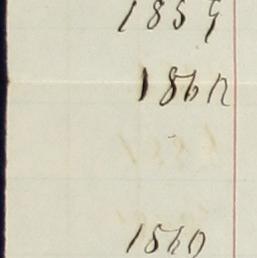 1859
1860
1860